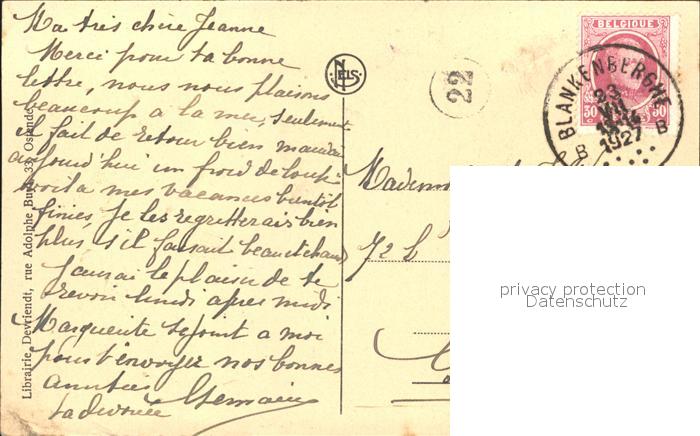 Ma très chère Jeanne
Merci pour ta bonne
lettre, nous nous plaisons
beaucoup à la mer, seulement
il fait de retour bien mauvais
aujourd'hui un froid de loup
voilà mes vacances bientôt
finies, je les regretterais bien
plus, s'il faisait beau et chaud
J'aurai le plaisir de te
revoir lundi après midi
Marguerite se joint a moi
pour t'envoyer nos bonnes
amitiés Germaine
ta dévouée
Librairie Devriendt, rue Adolphe Buyl, 33, Ostende
NELS
22
BELGIQUE
30 30
BLANKENBERGHE
23
VII
1927
B B
72
privacy protection
Datenschutz